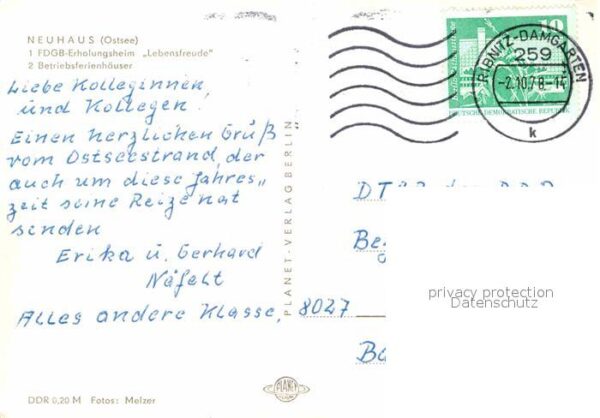 NEUHAUS (Ostsee)
1 FDGB-Erholungsheim „Lebensfreude"
2 Betriebsferienhäuser
Liebe Kolleginnen
und Kollegen!
Einen herzlichen Gruß
vom Ostseestrand, der
auch um diese Jahres„
zeit seine Reize hat
senden
Erika u. Gerhard
Alles andere Klasse.
DDR 0,20 M Fotos: Melzer
PLANET-VERLAG BERLIN
PLANET
10
DEUTSCHE DEMOKRATISCHE REPUBLIK
RIBNITZ-DAMGARTEN
259
-2.10.78.-14
k
8027
privacy protection
Datenschutz